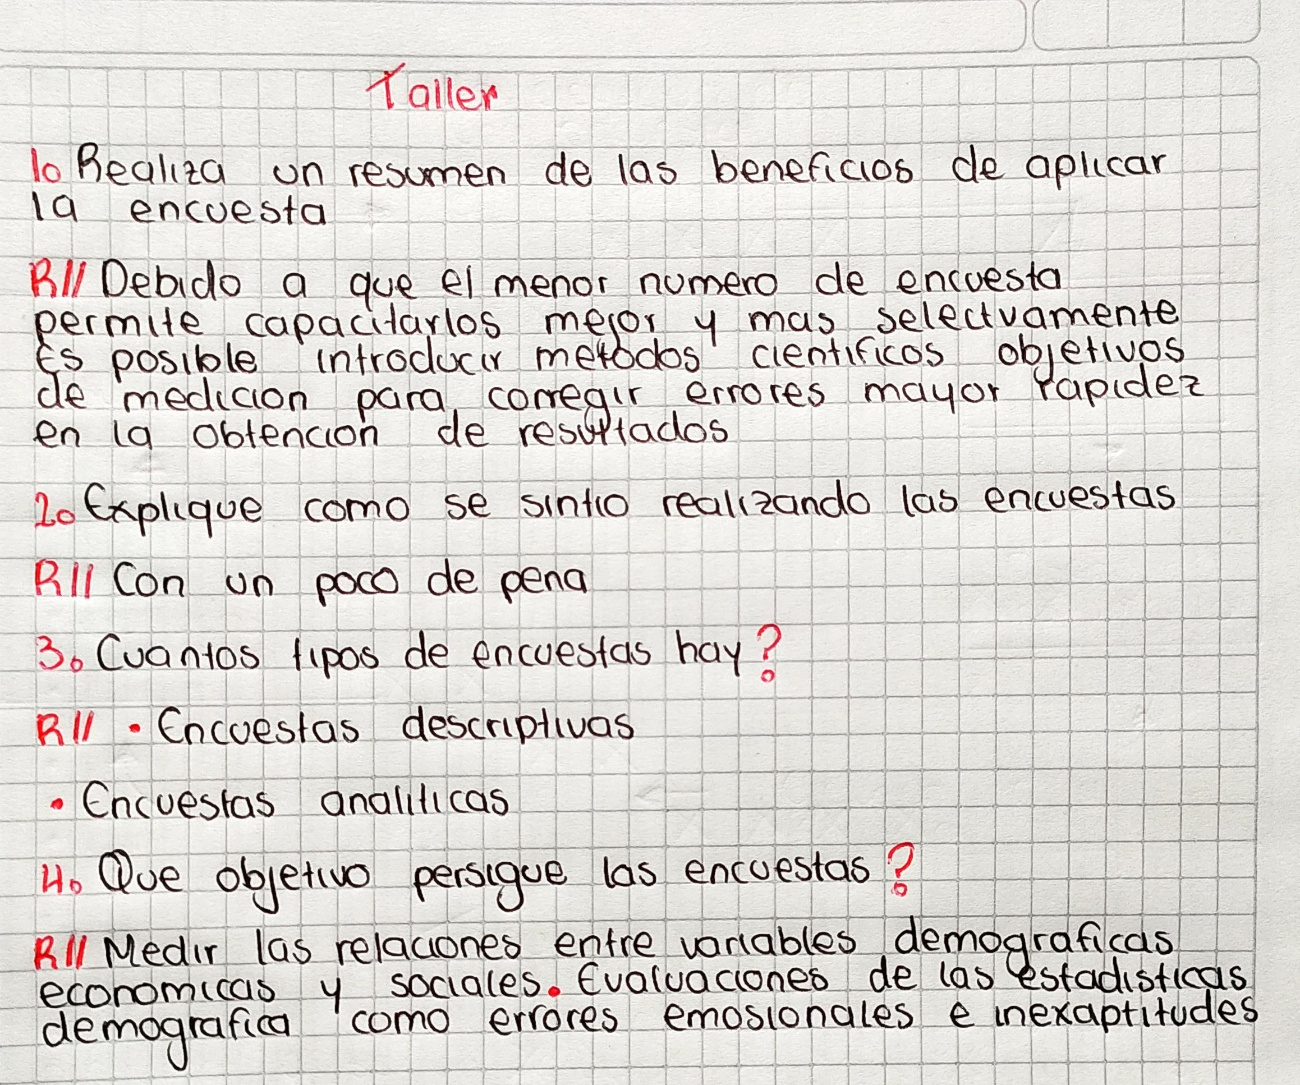 Taller
1. Realiza un resumen de las beneficios de aplicar
la encuesta
R// Debido a que el menor numero de encuesta
permite capacitarlos mejor y mas selectvamente
Es posible introducir metodos cientificos objetivos
de medicion para corregir errores mayor rapidez
en la obtencion de resultados
2. Explique como se sintio realizando las encuestas
R// Con un poco de pena
3. Cuantos tipos de encuestas hay?
R// • Encuestas descriptivas
• Encuestas analiticas
4. Que objetivo persigue las encuestas?
R// Medir las relaciones entre variables demograficas
economicas y sociales. Evaluaciones de las estadisticas
demografica como errores emosionales e inexaptitudes